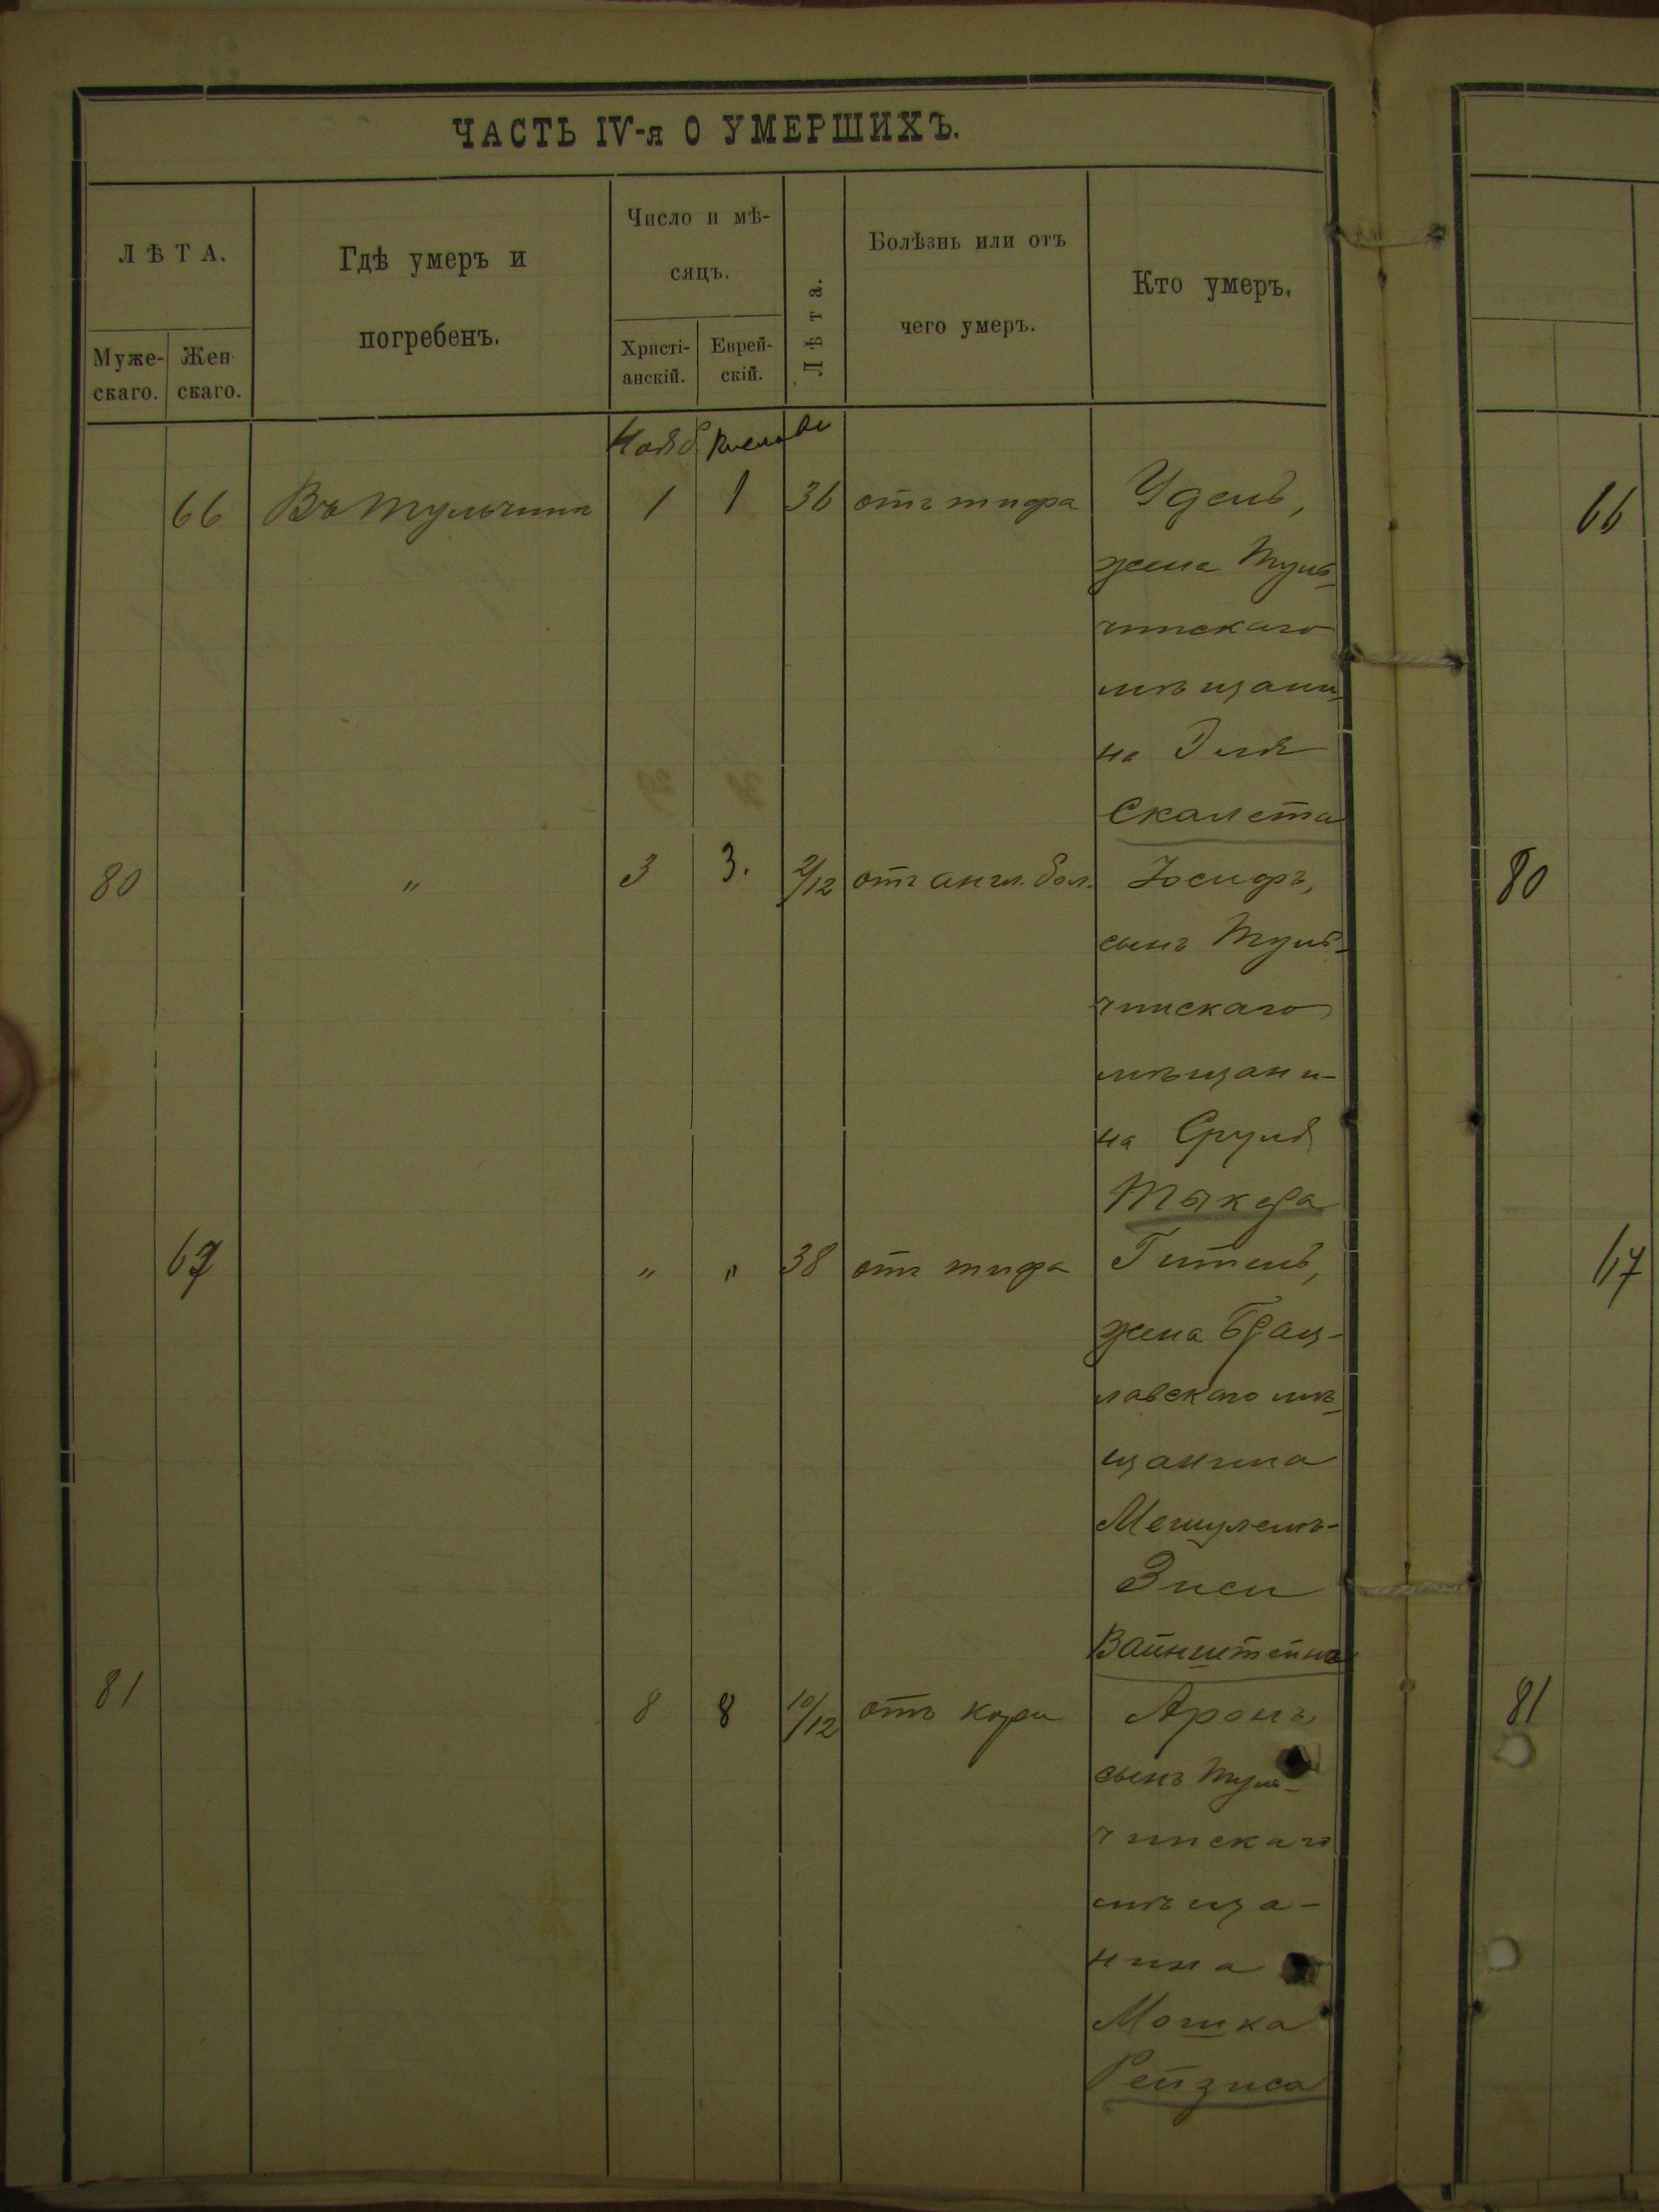 ЧАСТЬ IV-я О УМЕРШИХЪ.
ЛѢТА.
Муже-
скаго.
Жен
скаго.
Гдѣ умеръ и
погребенъ.
Число и мѣ-
сяцъ.
Христі-
анскій.
Еврей-
скій.
Лѣта.
Болѣзнь или отъ
чего умеръ.
Кто умеръ.
Нояб. Кисле
66 Въ Тульчинѣ 1 1 36 отъ тифа Удель,
жена Туль-
чинскаго
мѣщани-
на Эля
Скалета
80 " 3 3. 2/12 отъ англ. бол. Іосифъ,
сынъ Туль-
чинскаго
мѣщани-
на Сруля
Тыкера
67 " " 38 отъ тифа Гитель,
жена Брац-
лавскаго мѣ-
щанина
Мешулемъ-
Зиси
Вайнштейна
81 8 8 10/12 отъ кори Аронъ,
сынъ Туль-
чинскаго
мѣща-
нина
Мошка
Рейзиса
66
80
67
81